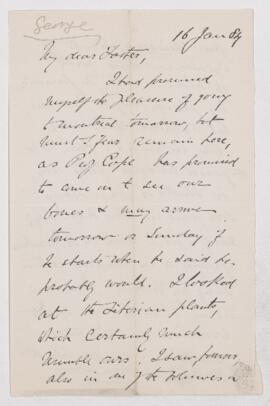 George
16 Jan 84
My dear Foster,
I had promised
myself the pleasure of going
to Montreal tomorrow, but
must I fear remain here,
as Prof Cope has promised
to come on & see our
bones & may arrive
tomorrow or Sunday if
he starts when he said he
probably would. I looked
at the Silurian plants,
which certainly much
resemble ours. I saw
also in one of the